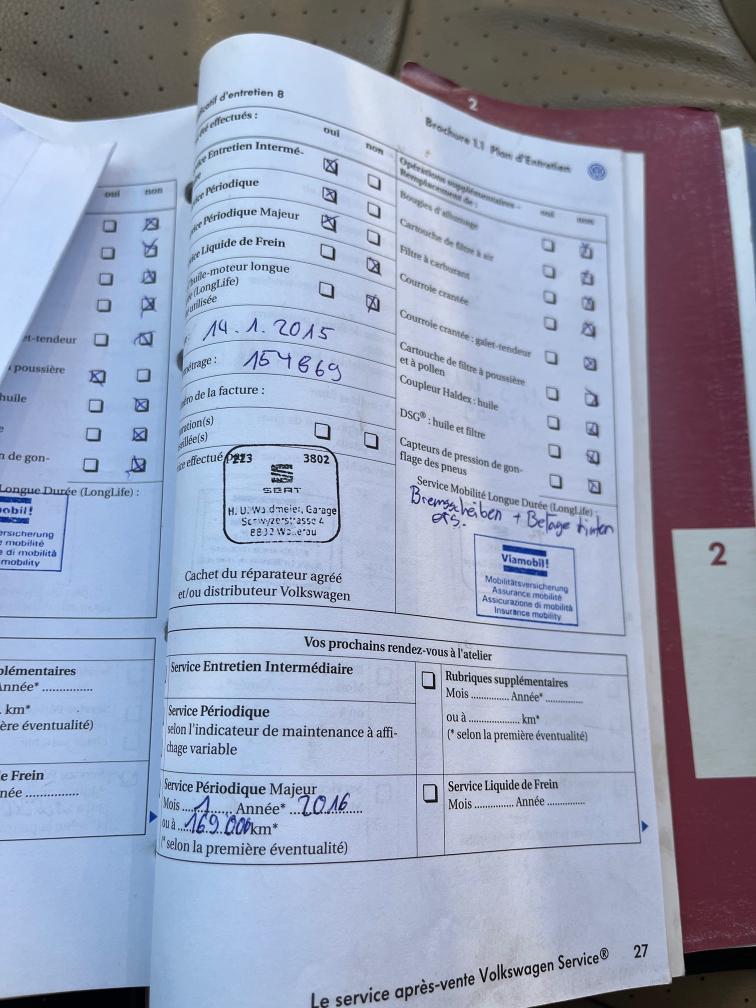 oui non
et-tendeur
poussière
huile
e
n de gon-
Longue Durée (LongLife) :
mobil!
ersicherung
mobilité
e di mobilità
mobility
plémentaires
Année* ..............
km*
ère éventualité)
e Frein
née ..............
d'entretien 8
effectués :
oui non
ice Entretien Intermé-
Service Périodique
Service Périodique Majeur
Liquide de Frein
huile-moteur longue
(LongLife)
utilisée
14.1.2015
métrage : 154869
éro de la facture :
ration(s)
eillée(s)
ce effectué par
223 3802
SEAT
H. U. Waldmeier, Garage
4
Cachet du réparateur agréé
et/ou distributeur Volkswagen
2
Brochure 1.1 Plan d'Entretien
Opérations supplémentaires -
Remplacement de :
oui non
Bougies d'allumage
Cartouche de filtre à air
Filtre à carburant
Courroie crantée
Courroie crantée : galet-tendeur
Cartouche de filtre à poussière
et à pollen
Coupleur Haldex : huile
DSG® : huile et filtre
Capteurs de pression de gon-
flage des pneus
Service Mobilité Longue Durée (LongLife) :
Bremsscheiben + Beläge hinten
ers.
Viamobil!
Mobilitätsversicherung
Assurance mobilité
Assicurazione di mobilità
Insurance mobility
Vos prochains rendez-vous à l'atelier
Service Entretien Intermédiaire
Service Périodique
selon l'indicateur de maintenance à affi-
chage variable
Service Périodique Majeur
Mois ....1........ Année* ..2016............
ou à ..169.000km*
(* selon la première éventualité)
Rubriques supplémentaires
Mois ............. Année* .............
ou à .................. km*
(* selon la première éventualité)
Service Liquide de Frein
Mois ............. Année .............
Le service après-vente Volkswagen Service® 27
2